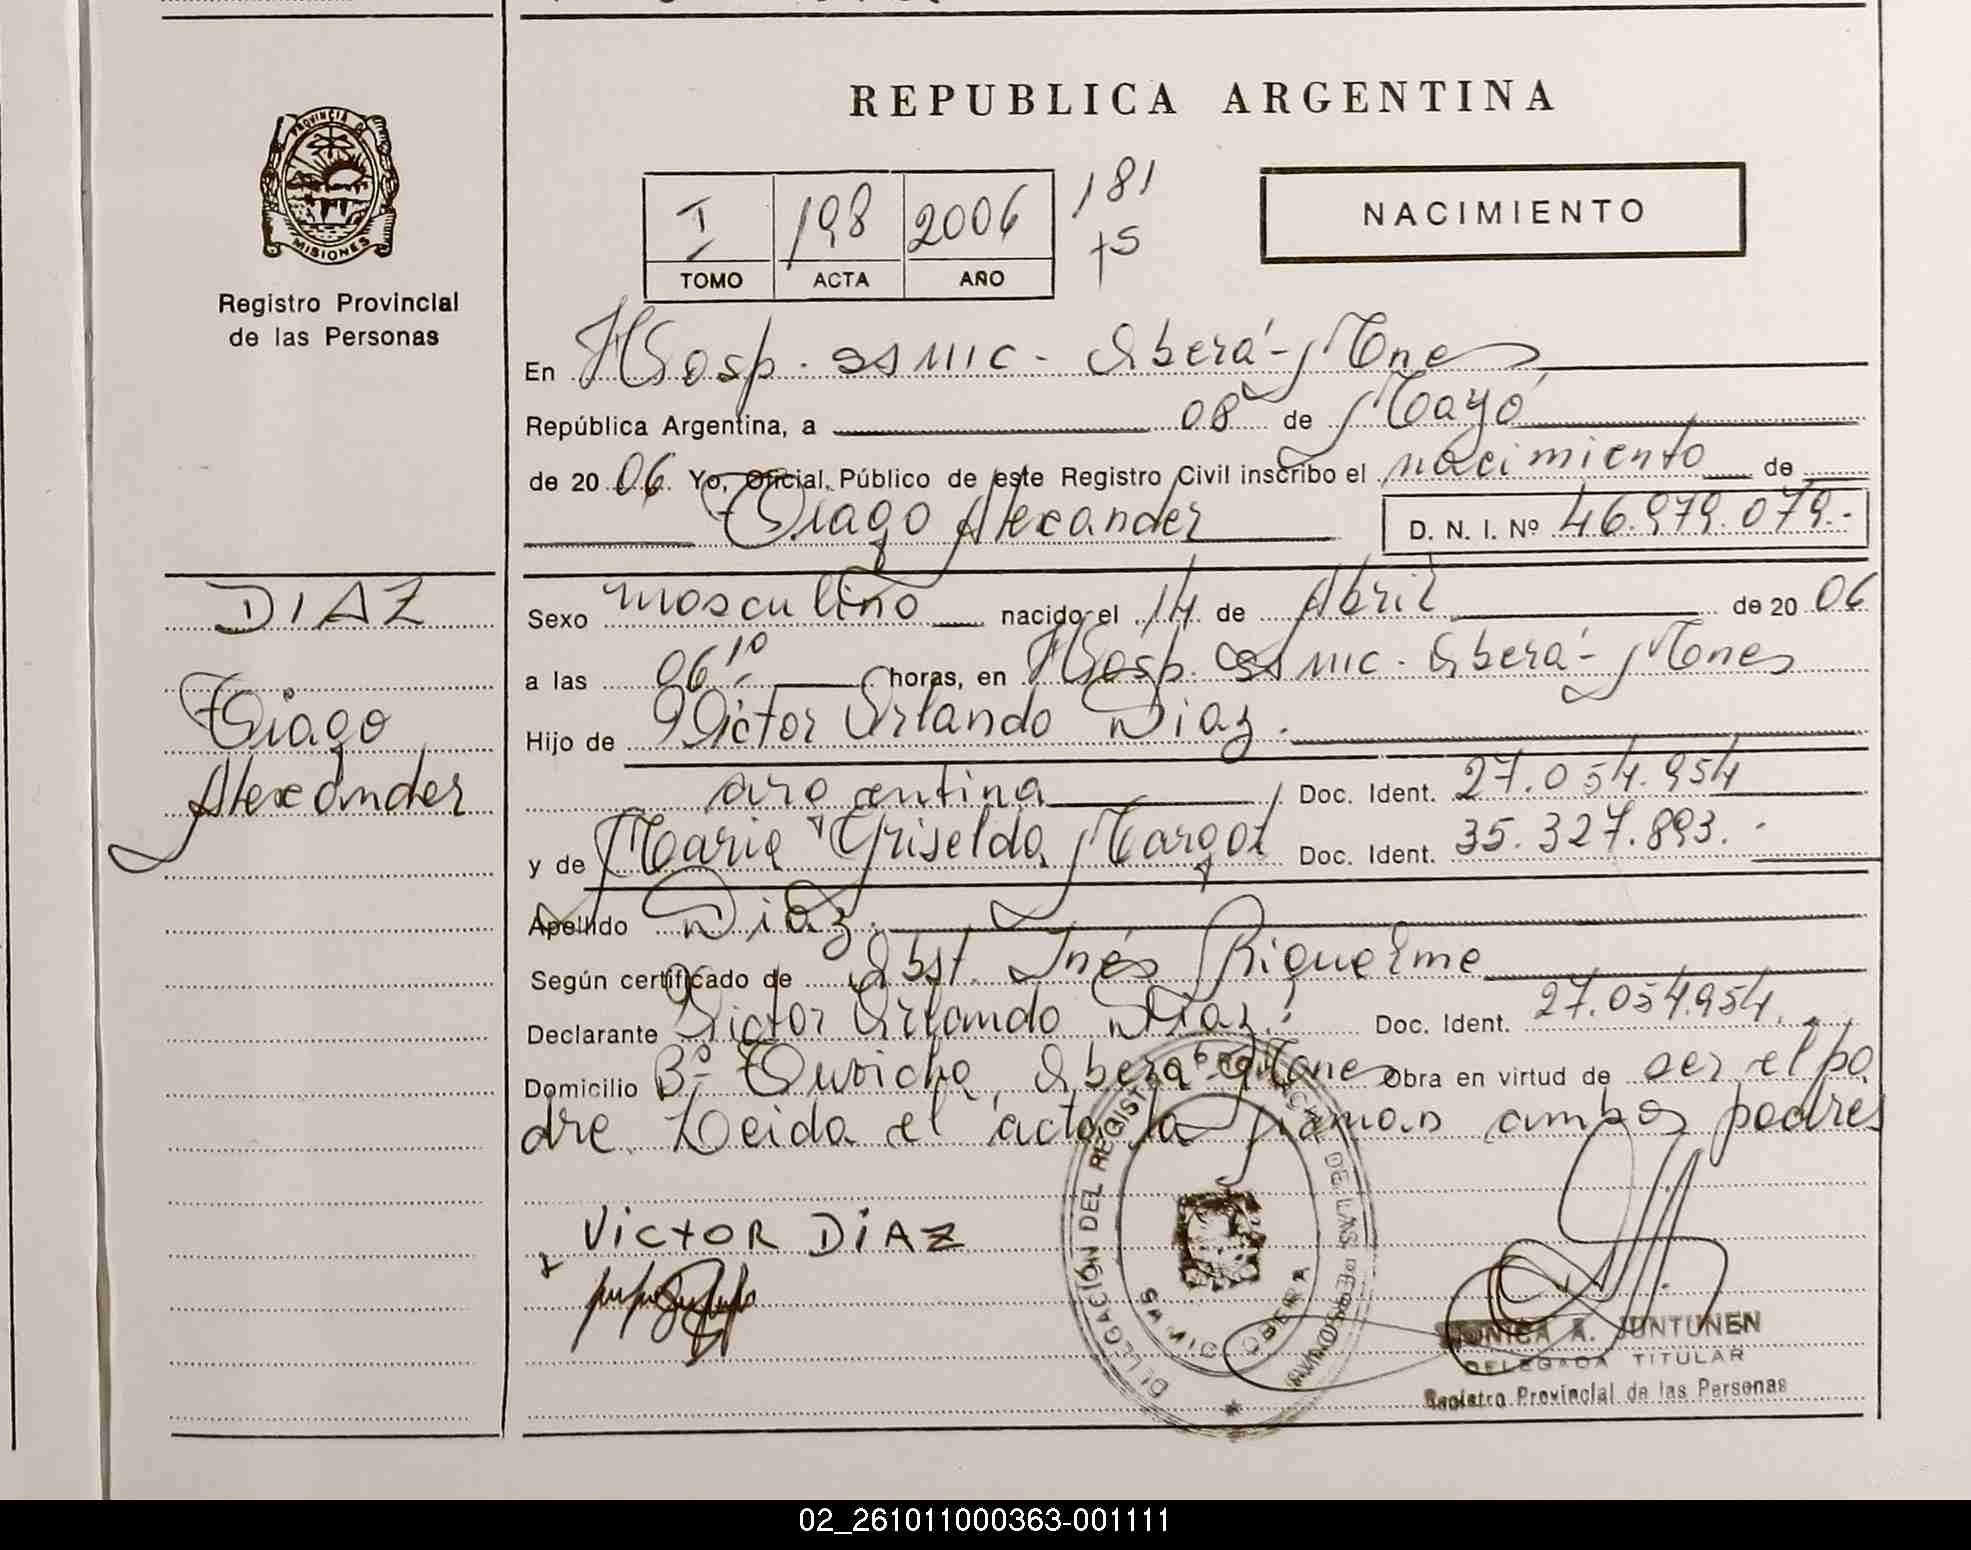 REPUBLICA ARGENTINA
PROVINCIA DE
MISIONES
Registro Provincial
de las Personas
I 198 2006
TOMO ACTA AÑO
181
TS
NACIMIENTO
En Hosp. SSMIC - Oberá - Mnes
República Argentina, a 08 de Mayo
de 20 06 Yo, Oficial Público de este Registro Civil inscribo el nacimiento de
Tiago Alexander D. N. I. Nº 46.979.079.-
DIAZ
Tiago
Alexander
Sexo masculino nacido el 14 de Abril de 20 06
a las 06 10 horas, en Hosp. SSMIC - Oberá - Mones
Hijo de Victor Orlando Diaz.
argentina Doc. Ident. 27.054.954
y de Maria Griselda Margot Doc. Ident. 35.327.893.-
Apellido Diaz.
Según certificado de Obst. Inés Riquelme
Declarante Victor Orlando Diaz. Doc. Ident. 27.054.954.
Domicilio Bº Oberá Mones Obra en virtud de ser el pa
dre. Leida el acta la firman ambos padres
VICTOR DIAZ
DELEGACIÓN DEL REGISTRO PROVINCIAL DE LAS PERSONAS
OBERA
MONICA A. JUNTUNEN
DELEGADA TITULAR
Registro Provincial de las Personas
02_261011000363-001111